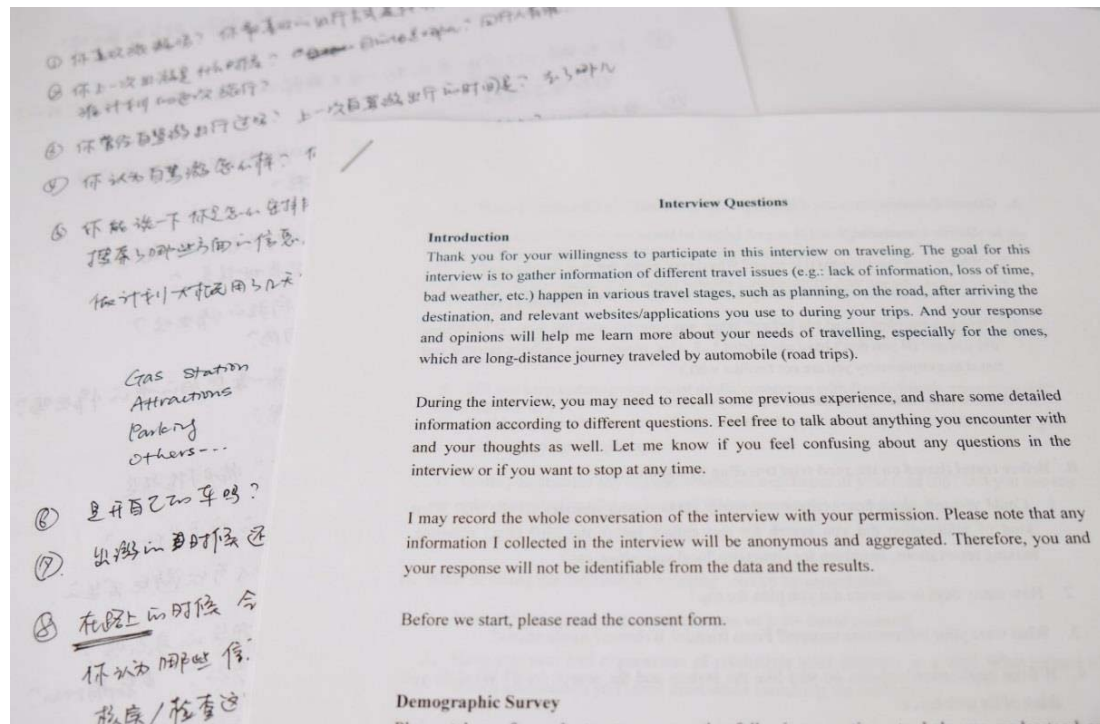 ① 你喜欢旅游吗? 你
② 你上一次出游是什么时候?
③ 你曾经自驾游出行过吗? 上一次自驾游出行的时间是? 去了哪儿
④ 你认为自驾游怎么样?
⑤ 你能说一下你是怎么安排
搜索了哪些方面的信息.
做计划大概用了几天
Gas Station
Attractions
Parking
others---
⑥ 是开自己的车吗?
⑦. 出游的时候还
⑧ 在路上的时候会
你认为哪些信.
/检查这
Interview Questions
Introduction
Thank you for your willingness to participate in this interview on traveling. The goal for this
interview is to gather information of different travel issues (e.g.: lack of information, loss of time,
bad weather, etc.) happen in various travel stages, such as planning, on the road, after arriving the
destination, and relevant websites/applications you use to during your trips. And your response
and opinions will help me learn more about your needs of travelling, especially for the ones,
which are long-distance journey traveled by automobile (road trips).
During the interview, you may need to recall some previous experience, and share some detailed
information according to different questions. Feel free to talk about anything you encounter with
and your thoughts as well. Let me know if you feel confusing about any questions in the
interview or if you want to stop at any time.
I may record the whole conversation of the interview with your permission. Please note that any
information I collected in the interview will be anonymous and aggregated. Therefore, you and
your response will not be identifiable from the data and the results.
Before we start, please read the consent form.
Demographic Survey